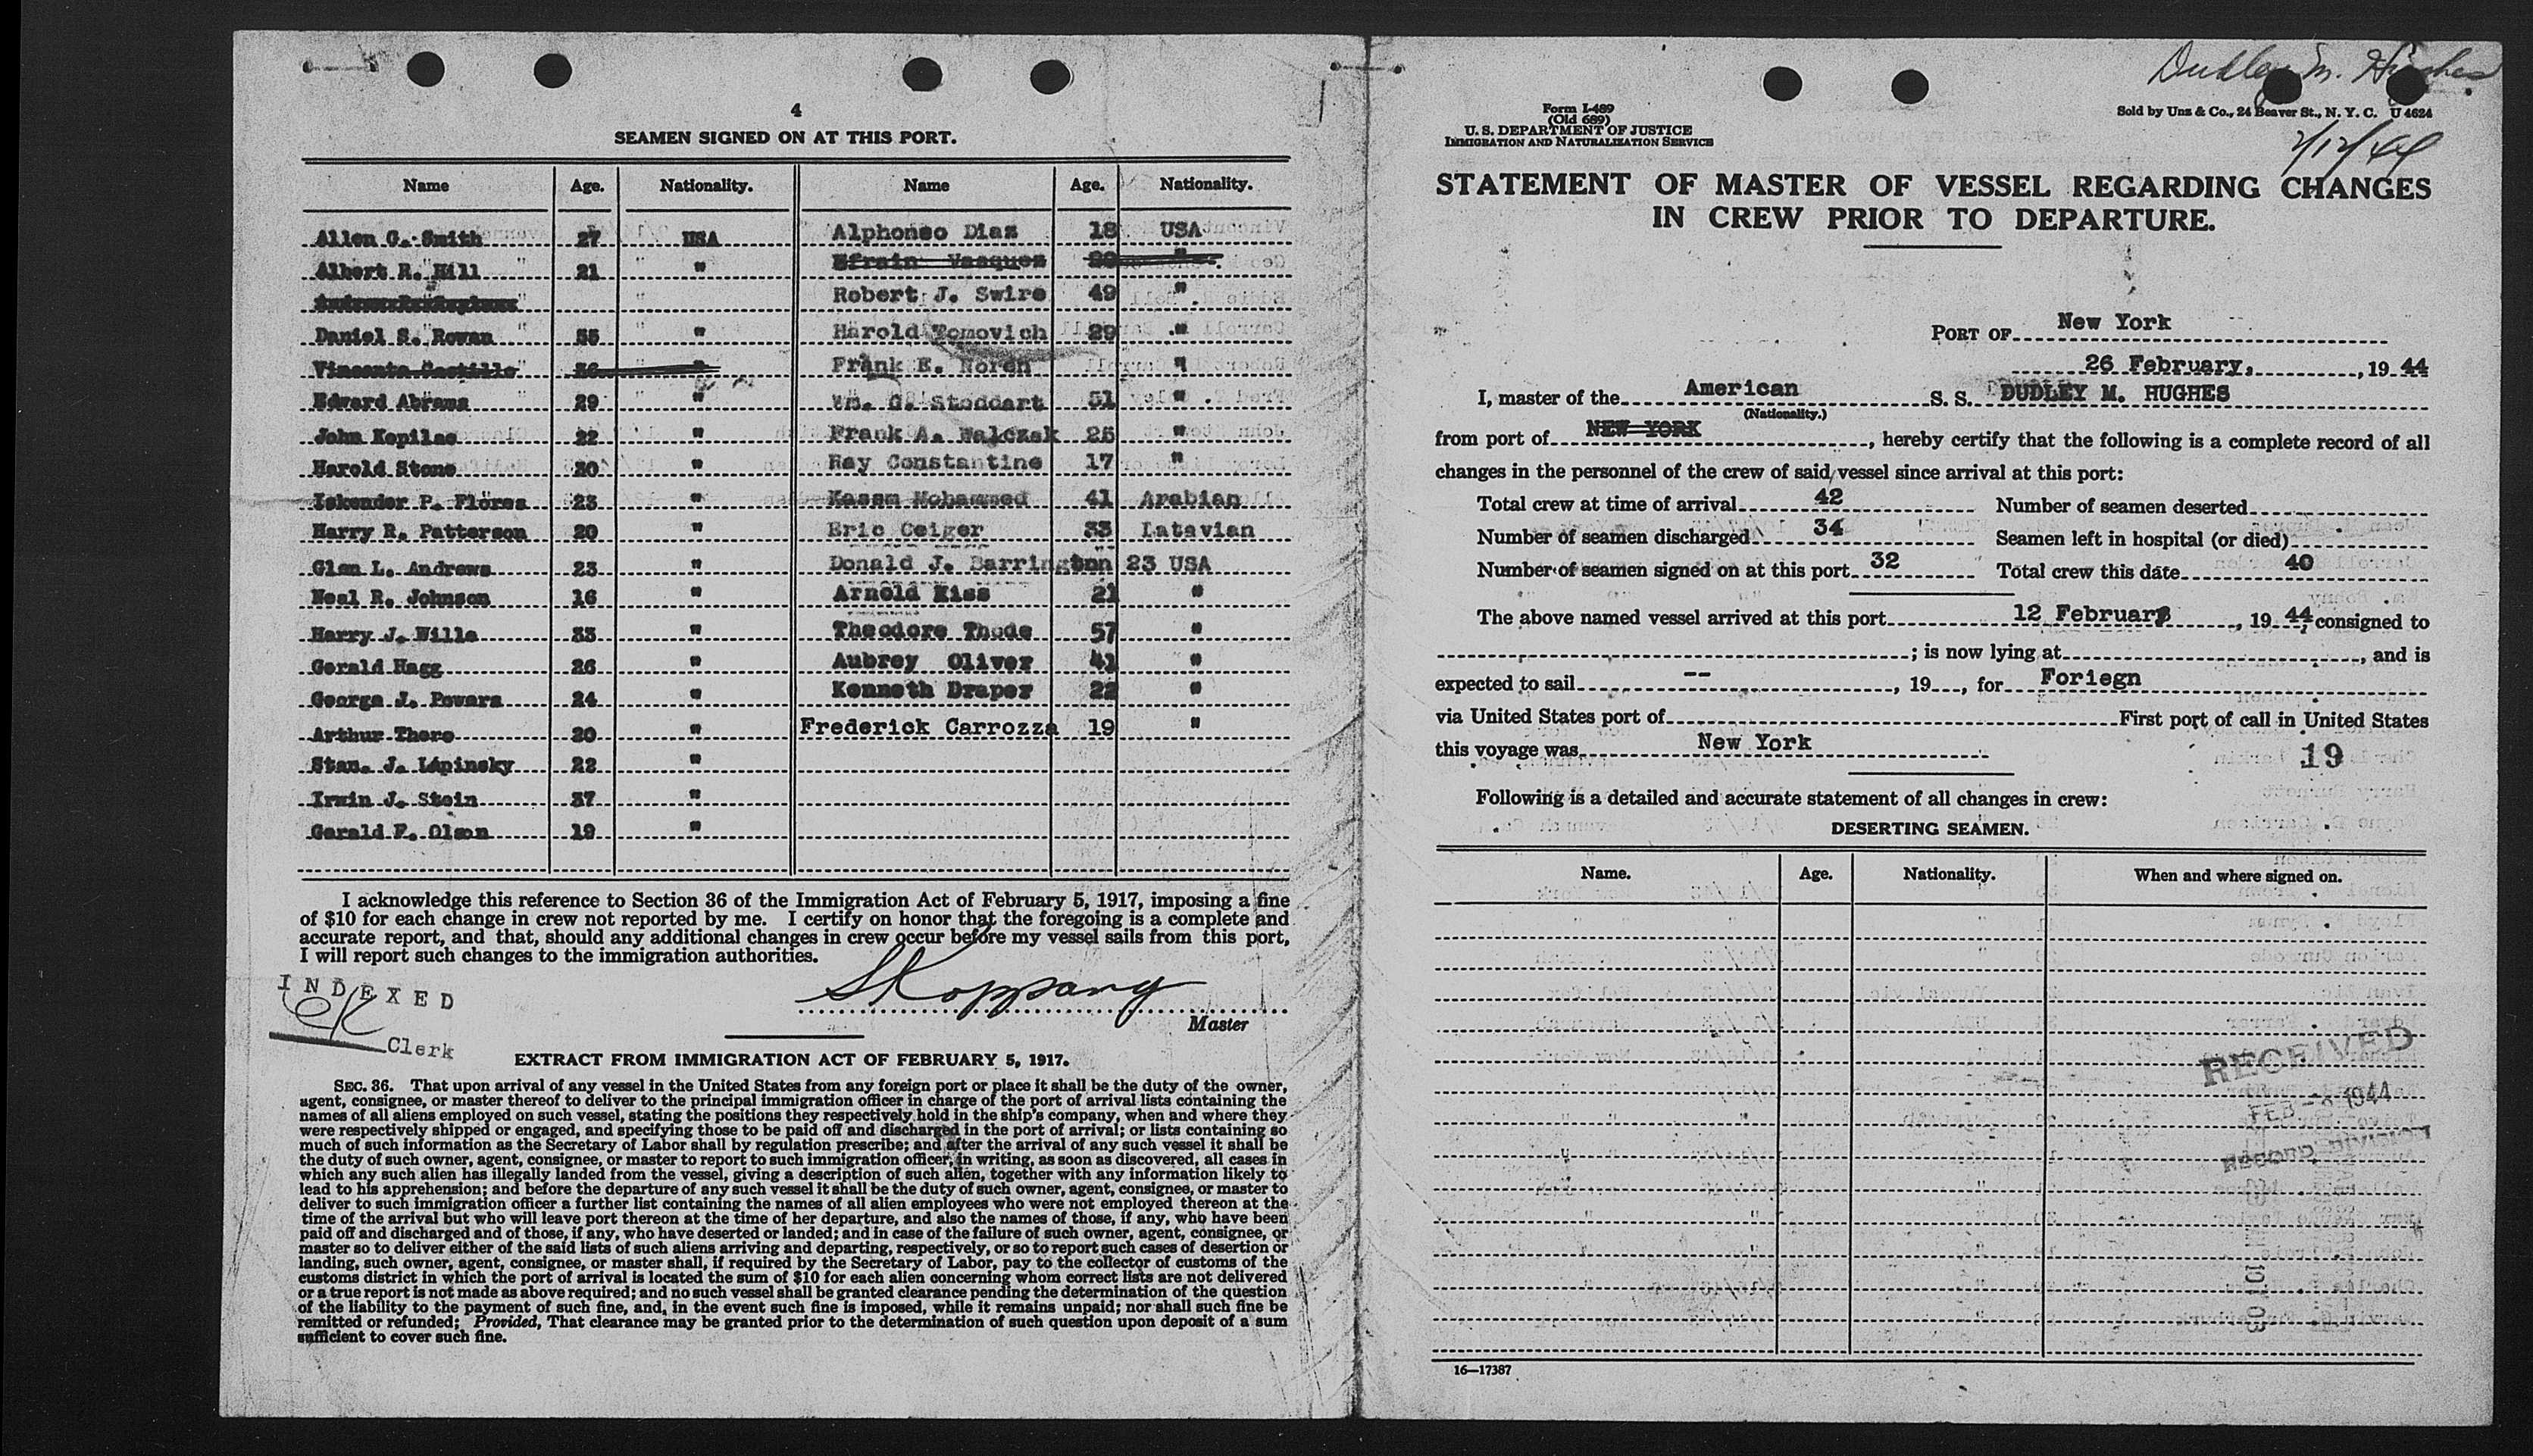 4
SEAMEN SIGNED ON AT THIS PORT.
Name Age. Nationality. Name Age. Nationality.
Allen C. Smith 27 USA Alphonso Diaz 18 USA
Albert R. Hill 21 " Efrain Vasquez "
Robert J. Swire 49 "
Daniel S. Rowan 55 " Harold Tomovich 29 "
Vincente Castillo 36 " Frank E. Noren "
Edward Abrams 29 " Wm. G. Stoddart 51 "
John Kopilac 22 " Frank A. Walczak 25 "
Harold Stone 30 " Ray Constantine 17 "
Iskender P. Flores 23 " Kasem Mohammed 41 Arabian
Harry R. Patterson 20 " Eric Ceiger 33 Latavian
Glen L. Andrews 23 " Donald J. Barrington 23 USA
Neal R. Johnson 16 " Arnold Kiss 21 "
Harry J. Wille 33 " Theodore Thode 57 "
Gerald Hagg 26 " Aubrey Oliver 41 "
George J. Powers 24 " Kenneth Draper 22 "
Arthur Thero 20 " Frederick Carrozza 19 "
Stan. J. Lapinsky 22 "
Irwin J. Stein 37 "
Gerald F. Olson 19 "
I acknowledge this reference to Section 36 of the Immigration Act of February 5, 1917, imposing a fine
of $10 for each change in crew not reported by me. I certify on honor that the foregoing is a complete and
accurate report, and that, should any additional changes in crew occur before my vessel sails from this port,
I will report such changes to the immigration authorities.
INDEXED
SKoppang
Master
Clerk
EXTRACT FROM IMMIGRATION ACT OF FEBRUARY 5, 1917.
SEC. 36. That upon arrival of any vessel in the United States from any foreign port or place it shall be the duty of the owner,
agent, consignee, or master thereof to deliver to the principal immigration officer in charge of the port of arrival lists containing the
names of all aliens employed on such vessel, stating the positions they respectively hold in the ship's company, when and where they
were respectively shipped or engaged, and specifying those to be paid off and discharged in the port of arrival; or lists containing so
much of such information as the Secretary of Labor shall by regulation prescribe; and after the arrival of any such vessel it shall be
the duty of such owner, agent, consignee, or master to report to such immigration officer, in writing, as soon as discovered, all cases in
which any such alien has illegally landed from the vessel, giving a description of such alien, together with any information likely to
lead to his apprehension; and before the departure of any such vessel it shall be the duty of such owner, agent, consignee, or master to
deliver to such immigration officer a further list containing the names of all alien employees who were not employed thereon at the
time of the arrival but who will leave port thereon at the time of her departure, and also the names of those, if any, who have been
paid off and discharged and of those, if any, who have deserted or landed; and in case of the failure of such owner, agent, consignee, or
master so to deliver either of the said lists of such aliens arriving and departing, respectively, or so to report such cases of desertion or
landing, such owner, agent, consignee, or master shall, if required by the Secretary of Labor, pay to the collector of customs of the
customs district in which the port of arrival is located the sum of $10 for each alien concerning whom correct lists are not delivered
or a true report is not made as above required; and no such vessel shall be granted clearance pending the determination of the question
of the liability to the payment of such fine, and, in the event such fine is imposed, while it remains unpaid; nor shall such fine be
remitted or refunded; Provided, That clearance may be granted prior to the determination of such question upon deposit of a sum
sufficient to cover such fine.
Dudley M. Hughes
Form I-489
(Old 689)
U. S. DEPARTMENT OF JUSTICE
IMMIGRATION AND NATURALIZATION SERVICE
Sold by Unz & Co., 24 Beaver St., N. Y. C. U 4624
2/12/44
STATEMENT OF MASTER OF VESSEL REGARDING CHANGES
IN CREW PRIOR TO DEPARTURE.
PORT OF New York
26 February, , 19 44
I, master of the American S. S. DUDLEY M. HUGHES
(Nationality.)
from port of NEW YORK , hereby certify that the following is a complete record of all
changes in the personnel of the crew of said vessel since arrival at this port:
Total crew at time of arrival 42 Number of seamen deserted
Number of seamen discharged 34 Seamen left in hospital (or died)
Number of seamen signed on at this port 32 Total crew this date 40
The above named vessel arrived at this port 12 February , 19 44, consigned to
; is now lying at , and is
expected to sail -- , 19 , for Foriegn
via United States port of First port of call in United States
this voyage was New York
19
Following is a detailed and accurate statement of all changes in crew:
DESERTING SEAMEN.
Name. Age. Nationality. When and where signed on.
RECEIVED
FEB 1944
RECORD DIVISION
16—17387